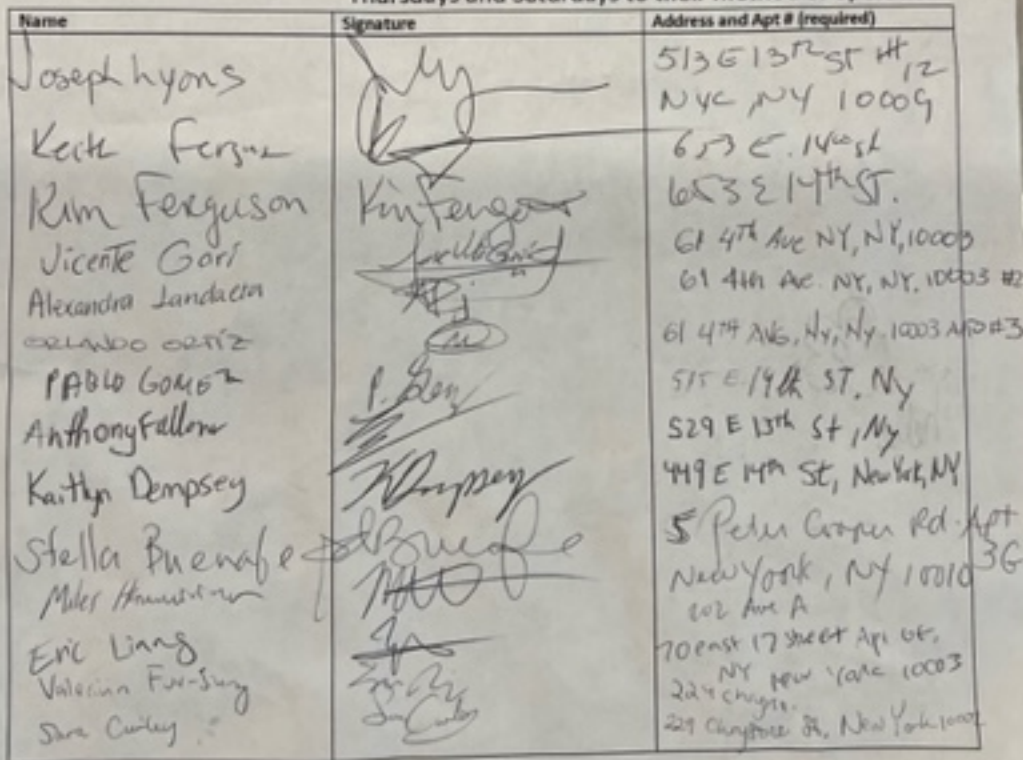 Thursdays and Saturdays to their
Name Signature Address and Apt # (required)
Joseph Lyons 513 E 13TH ST # 12
NYC, NY 10009
Keith 653 E. 14th St
Kim Ferguson Kim Ferguson 653 E 14th ST.
Vicente Gori 61 4TH Ave NY, NY, 10003
Alexandra Landaeta 61 4th Ave. NY, NY. 10003 #2
ORLANDO ORTIZ 61 4TH AVE, NY, NY. 10003 #3
PABLO GOMEZ P. ST, NY
Anthony Fallone 529 E 13th St, NY
Kaitlyn Dempsey KDempsey 449 E 14th St, New York, NY
Stella Buenafe 5 Peter Cooper Rd. Apt 3G
New York, NY 10010
Miles 202 Ave A
Eric Liang 70 east 17 street Apt
NY New York 10003
Valerian
Sara Curley 229 Chrystie St, New York